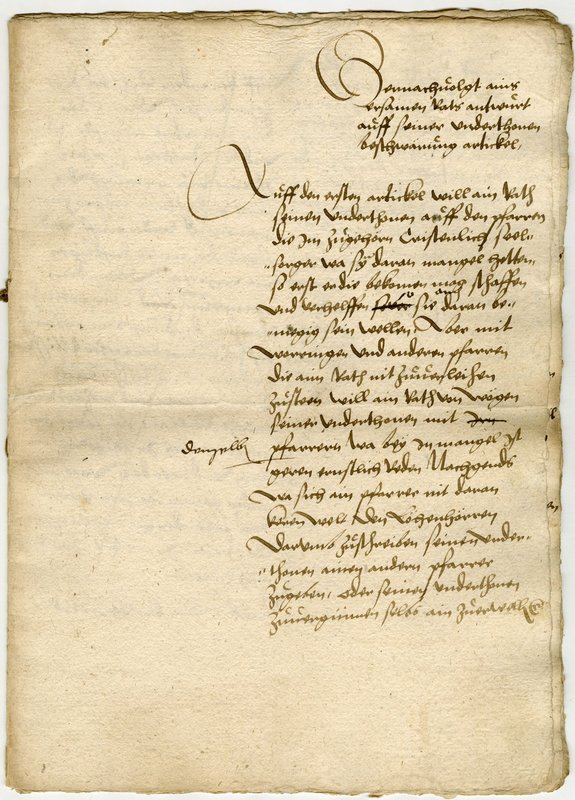 Hernachuolgt ains
ersamen Rats antwurt
auff seiner vnderthonen
beschwärung artickel.
Auff den ersten artickel will ain Rath
seinen vnderthonen auff den pfarren
die Im zugehörn Cristenlich seel-
sorger wa sy daran mangel hetten
so erst er die bekomen mag schaffen
vnd verhelffen sie daran be-
niegig sein wellen. Aber mit
Worringen vnd anderen pfarren
die aim Rath nit zuuerleihen
zusteen will ain Rath von wegen
seiner vnderthonen mit
denselb
pfarrern wa bey In mangel Ist
geren ernstlich Reden Nachgends
wa sich ain pfarrer nit daran
keren wolt den Lehenherren
darumb zuschreiben seinen vnder-
thonen ainen andern pfarrer
zugeben. oder seinen vnderthonen
zuuergünnen selbs ain zuerwelen